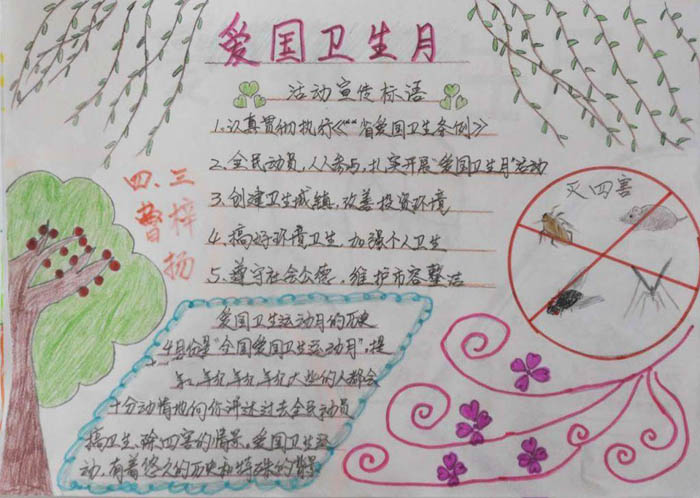 爱国卫生月
活动宣传标语
1.认真贯彻执行《**省爱国卫生条例》
2.全民动员,人人参与,扎实开展"爱国卫生月"活动
3.创建卫生城镇,改善投资环境
4.搞好环境卫生,加强个人卫生
5.遵守社会公德,维护市容整洁
四、三
曹梓扬
灭四害
爱国卫生运动月的历史
4月份是"全国爱国卫生运动月",提
起,年纪大些的人都会
十分动情地向你讲述过去全民动员
搞卫生、除四害的情景,爱国卫生运
动,有着悠久的历史和特殊的背景